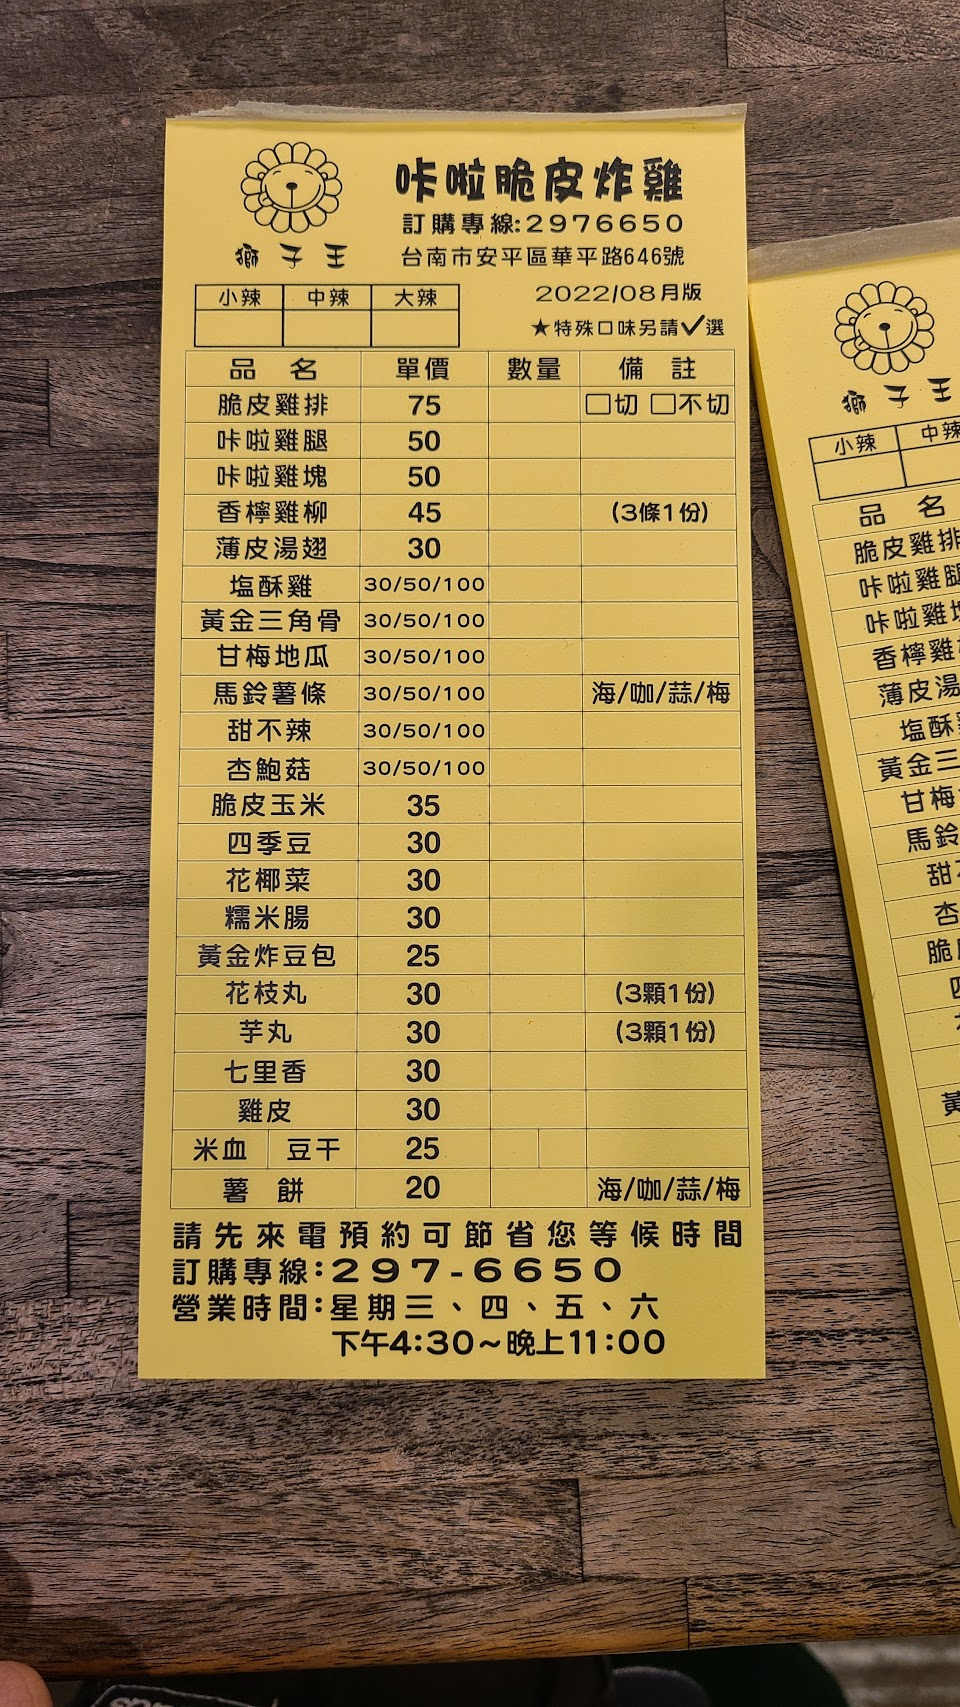 咔啦脆皮炸雞
訂購專線:2976650
獅子王
台南市安平區華平路646號
小辣 中辣 大辣
2022/08月版
★特殊口味另請✓選
品名 單價 數量 備註
脆皮雞排 75 □切 □不切
咔啦雞腿 50
咔啦雞塊 50
香檸雞柳 45 (3條1份)
薄皮湯翅 30
塩酥雞 30/50/100
黃金三角骨 30/50/100
甘梅地瓜 30/50/100
馬鈴薯條 30/50/100 海/咖/蒜/梅
甜不辣 30/50/100
杏鮑菇 30/50/100
脆皮玉米 35
四季豆 30
花椰菜 30
糯米腸 30
黃金炸豆包 25
花枝丸 30 (3顆1份)
芋丸 30 (3顆1份)
七里香 30
雞皮 30
米血 豆干 25
薯餅 20 海/咖/蒜/梅
請先來電預約可節省您等候時間
訂購專線:297-6650
營業時間:星期三、四、五、六
下午4:30~晚上11:00
獅子王
小辣 中辣
品名
脆皮雞排
咔啦雞腿
咔啦雞塊
香檸雞
薄皮湯
塩酥
黃金三
甘梅
馬鈴
甜不
杏
脆
四
黃